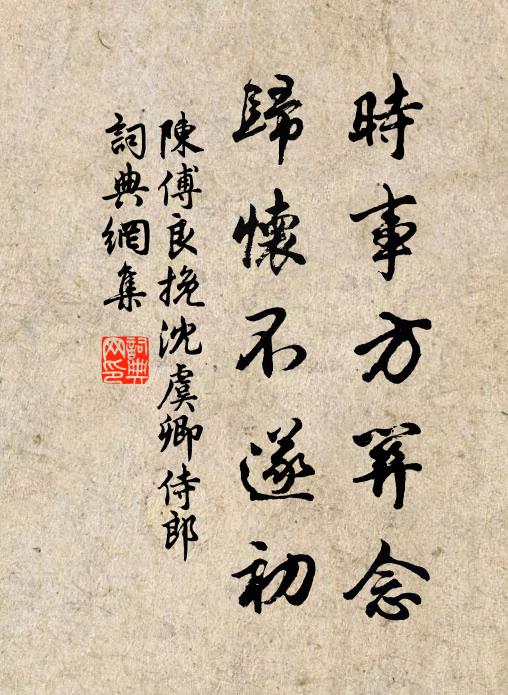 時事方關念
歸懷不遂初
陳傅良挽沈虞卿侍郎
詞典網集
詞典
网印